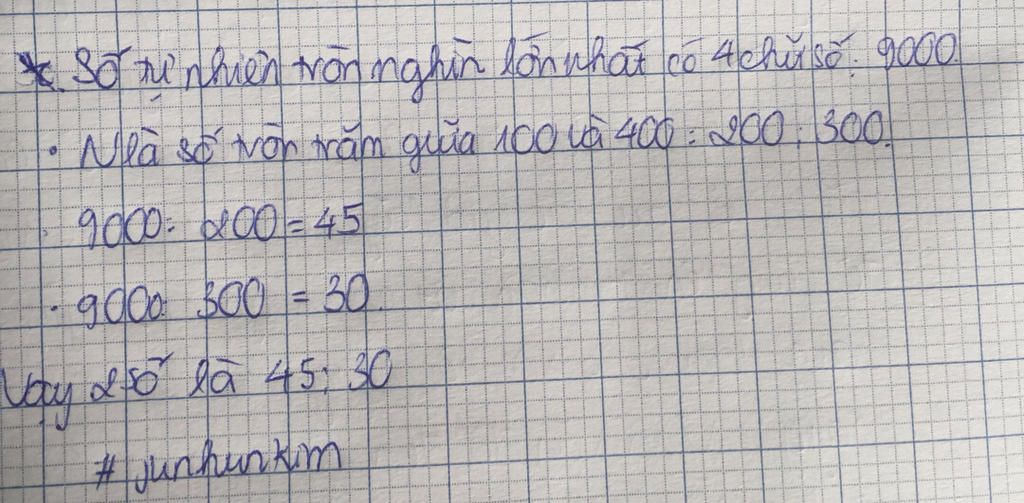 * Số tự nhiên tròn nghìn lớn nhất có 4 chữ số: 9000.
• N là số tròn trăm giữa 100 và 400: 200; 300.
. 9000: 200 = 45
. 9000: 300 = 30.
Vậy 2 số là 45; 30
# junhunkim